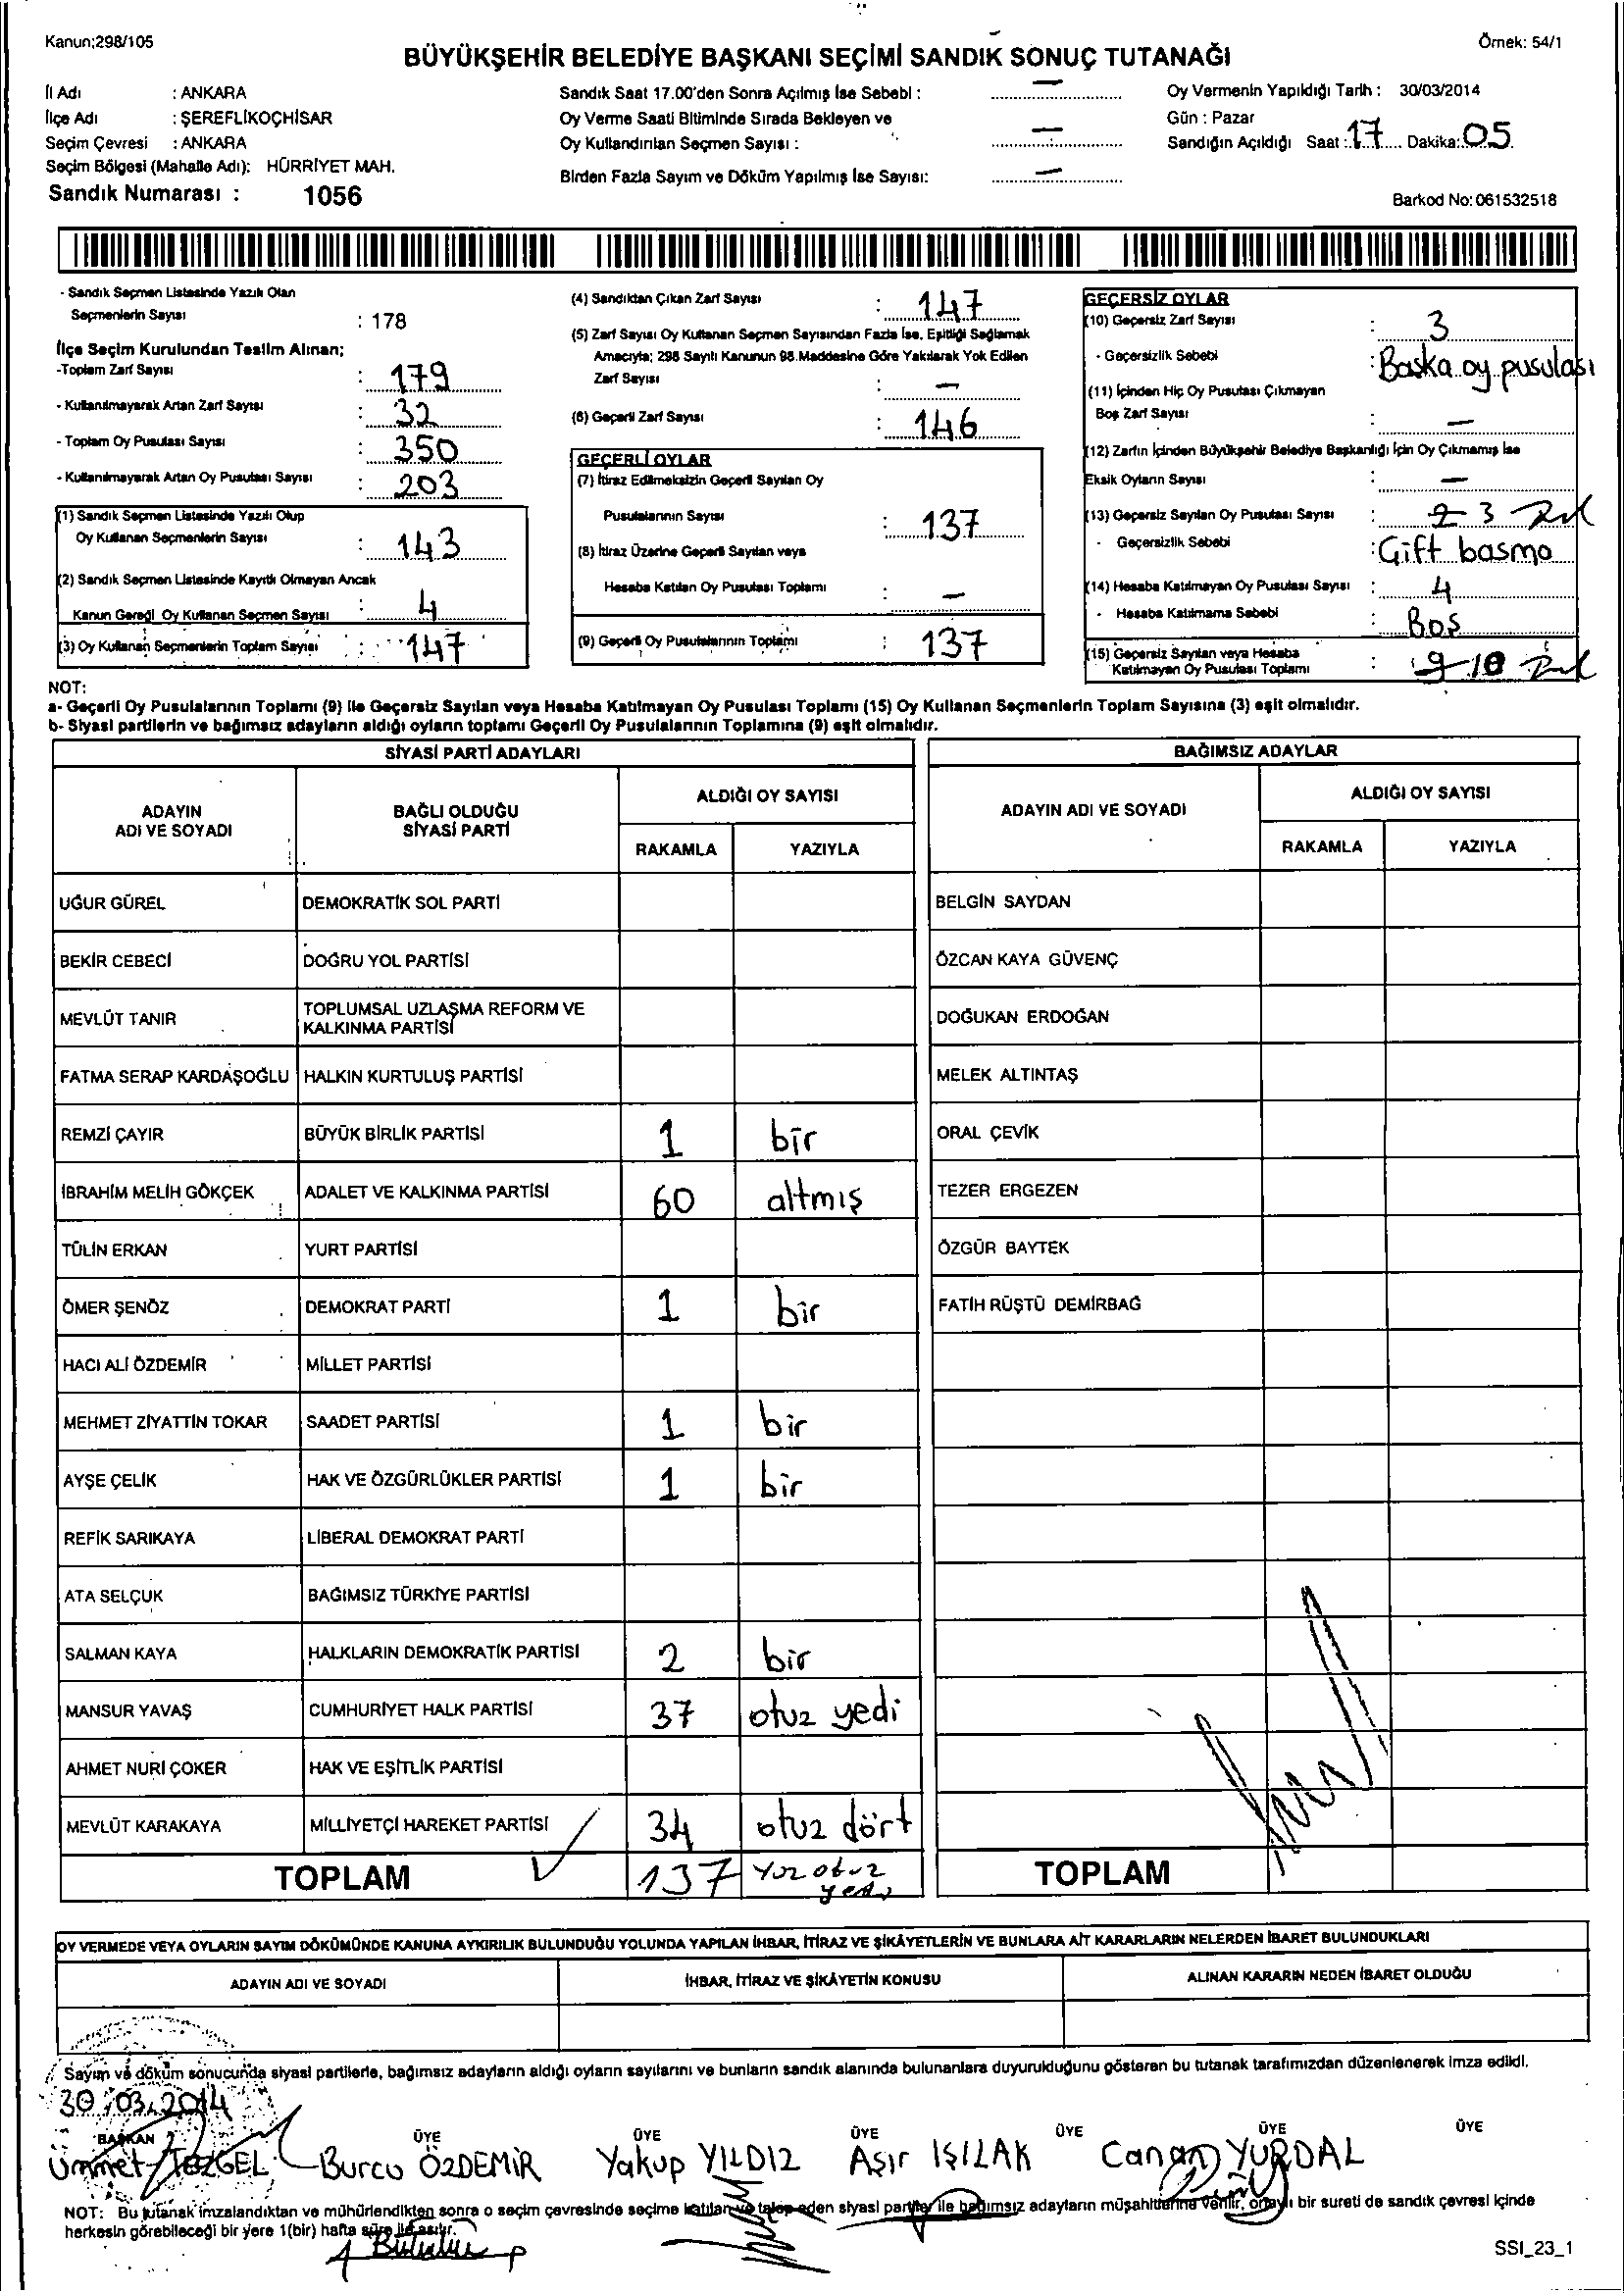 Kanun;298/105
Örnek: 54/1
BÜYÜKŞEHİR BELEDİYE BAŞKANI SEÇİMİ SANDIK SONUÇ TUTANAĞI
İl Adı : ANKARA
İlçe Adı : ŞEREFLİKOÇHİSAR
Seçim Çevresi : ANKARA
Seçim Bölgesi (Mahalle Adı): HÜRRİYET MAH.
Sandık Numarası : 1056
Sandık Saat 17.00'den Sonra Açılmış İse Sebebi : —
Oy Verme Saati Bitiminde Sırada Bekleyen ve
Oy Kullandırılan Seçmen Sayısı : —
Birden Fazla Sayım ve Döküm Yapılmış İse Sayısı: —
Oy Vermenin Yapıldığı Tarih : 30/03/2014
Gün : Pazar
Sandığın Açıldığı Saat : 17 Dakika: 05
Barkod No: 061532518
- Sandık Seçmen Listesinde Yazılı Olan
Seçmenlerin Sayısı : 178
İlçe Seçim Kurulundan Teslim Alınan;
-Toplam Zarf Sayısı : 179
- Kullanılmayarak Artan Zarf Sayısı : 32
- Toplam Oy Pusulası Sayısı : 350
- Kullanılmayarak Artan Oy Pusulası Sayısı : 203
(1) Sandık Seçmen Listesinde Yazılı Olup
Oy Kullanan Seçmenlerin Sayısı : 143
(2) Sandık Seçmen Listesinde Kayıtlı Olmayan Ancak
Kanun Gereği Oy Kullanan Seçmen Sayısı : 4
(3) Oy Kullanan Seçmenlerin Toplam Sayısı : 147
(4) Sandıktan Çıkan Zarf Sayısı : 147
(5) Zarf Sayısı Oy Kullanan Seçmen Sayısından Fazla İse, Eşitliği Sağlamak
Amacıyla; 298 Sayılı Kanunun 98.Maddesine Göre Yakılarak Yok Edilen
Zarf Sayısı : —
(6) Geçerli Zarf Sayısı : 146
GEÇERLİ OYLAR
(7) İtiraz Edilmeksizin Geçerli Sayılan Oy
Pusulalarının Sayısı : 137
(8) İtiraz Üzerine Geçerli Sayılan veya
Hesaba Katılan Oy Pusulası Toplamı : —
(9) Geçerli Oy Pusulalarının Toplamı : 137
GEÇERSİZ OYLAR
(10) Geçersiz Zarf Sayısı : 3
- Geçersizlik Sebebi : Baska oy pusulası
(11) İçinden Hiç Oy Pusulası Çıkmayan
Boş Zarf Sayısı : —
(12) Zarfın İçinden Büyükşehir Belediye Başkanlığı İçin Oy Çıkmamış İse
Eksik Oyların Sayısı : —
(13) Geçersiz Sayılan Oy Pusulası Sayısı : 2 3
- Geçersizlik Sebebi : Çift basma
(14) Hesaba Katılmayan Oy Pusulası Sayısı : 4
- Hesaba Katılmama Sebebi : Boş
(15) Geçersiz Sayılan veya Hesaba
Katılmayan Oy Pusulası Toplamı : 9 10
NOT:
a- Geçerli Oy Pusulalarının Toplamı (9) ile Geçersiz Sayılan veya Hesaba Katılmayan Oy Pusulası Toplamı (15) Oy Kullanan Seçmenlerin Toplam Sayısına (3) eşit olmalıdır.
b- Siyasi partilerin ve bağımsız adayların aldığı oyların toplamı Geçerli Oy Pusulalarının Toplamına (9) eşit olmalıdır.
SİYASİ PARTİ ADAYLARI
ADAYIN ADI VE SOYADI
BAĞLI OLDUĞU SİYASİ PARTİ
ALDIĞI OY SAYISI
RAKAMLA YAZIYLA
UĞUR GÜREL DEMOKRATİK SOL PARTİ
BEKİR CEBECİ DOĞRU YOL PARTİSİ
MEVLÜT TANIR TOPLUMSAL UZLAŞMA REFORM VE
KALKINMA PARTİSİ
FATMA SERAP KARDAŞOĞLU HALKIN KURTULUŞ PARTİSİ
REMZİ ÇAYIR BÜYÜK BİRLİK PARTİSİ 1 bir
İBRAHİM MELİH GÖKÇEK ADALET VE KALKINMA PARTİSİ 60 altmış
TÜLİN ERKAN YURT PARTİSİ
ÖMER ŞENÖZ DEMOKRAT PARTİ 1 bir
HACI ALİ ÖZDEMİR MİLLET PARTİSİ
MEHMET ZİYATTİN TOKAR SAADET PARTİSİ 1 bir
AYŞE ÇELİK HAK VE ÖZGÜRLÜKLER PARTİSİ 1 bir
REFİK SARIKAYA LİBERAL DEMOKRAT PARTİ
ATA SELÇUK BAĞIMSIZ TÜRKİYE PARTİSİ
SALMAN KAYA HALKLARIN DEMOKRATİK PARTİSİ 2 bir
MANSUR YAVAŞ CUMHURİYET HALK PARTİSİ 37 otuz yedi
AHMET NURİ ÇOKER HAK VE EŞİTLİK PARTİSİ
MEVLÜT KARAKAYA MİLLİYETÇİ HAREKET PARTİSİ 34 otuz dört
TOPLAM 137 Yüz otuz
yedi
BAĞIMSIZ ADAYLAR
ADAYIN ADI VE SOYADI
ALDIĞI OY SAYISI
RAKAMLA YAZIYLA
BELGİN SAYDAN
ÖZCAN KAYA GÜVENÇ
DOĞUKAN ERDOĞAN
MELEK ALTINTAŞ
ORAL ÇEVİK
TEZER ERGEZEN
ÖZGÜR BAYTEK
FATİH RÜŞTÜ DEMİRBAĞ
TOPLAM
OY VERMEDE VEYA OYLARIN SAYIM DÖKÜMÜNDE KANUNA AYKIRILIK BULUNDUĞU YOLUNDA YAPILAN İHBAR, İTİRAZ VE ŞİKÂYETLERİN VE BUNLARA AİT KARARLARIN NELERDEN İBARET BULUNDUKLARI
ADAYIN ADI VE SOYADI İHBAR, İTİRAZ VE ŞİKÂYETİN KONUSU ALINAN KARARIN NEDEN İBARET OLDUĞU
Sayım ve döküm sonucunda siyasi partilerle, bağımsız adayların aldığı oyların sayılarını ve bunların sandık alanında bulunanlara duyurulduğunu gösteren bu tutanak tarafımızdan düzenlenerek imza edildi.
30/03/2014
BAŞKAN ÜYE ÜYE ÜYE ÜYE ÜYE ÜYE
Ümmet TEZGEL Burcu ÖZDEMİR Yakup YILDIZ Aşır IŞILAK Canan YURDAL
NOT: Bu tutanak imzalandıktan ve mühürlendikten sonra o seçim çevresinde seçime katılan ve talep eden siyasi partiler ile bağımsız adayların müşahitlerine verilir, onaylı bir sureti de sandık çevresi içinde
herkesin görebileceği bir yere 1(bir) hafta süre ile asılır.
SSI_23_1